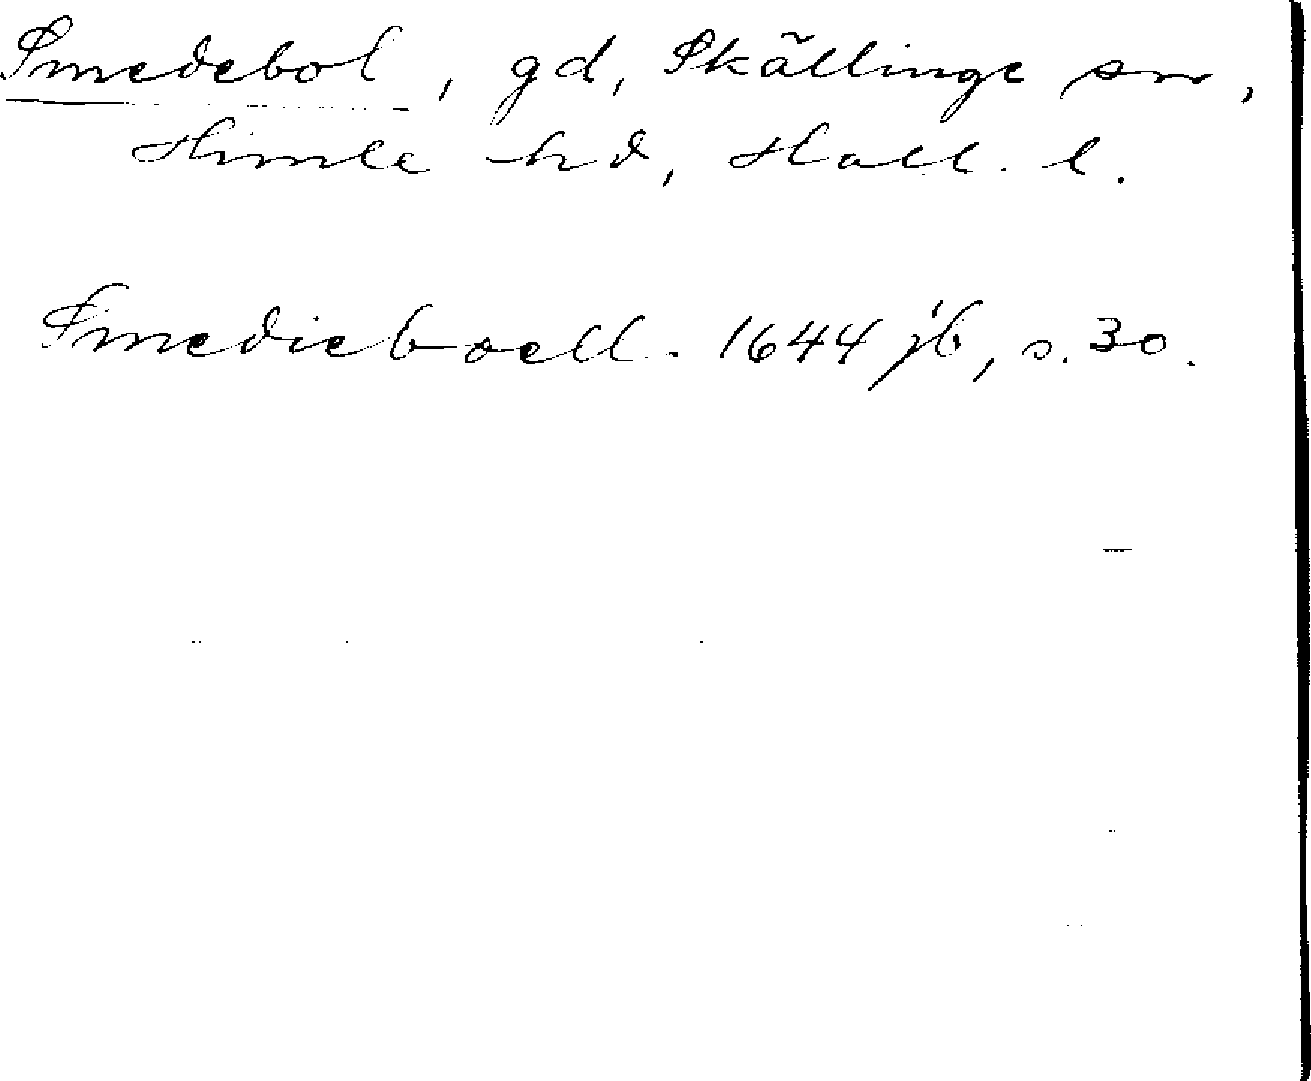 Smedebol, gd, Skällinge sn,
Himle hd, Hall. l.
Smedieboell. 1644 jb, s. 30.